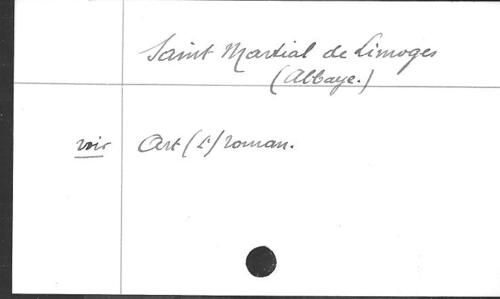 Saint Martial de Limoges
(Abbaye.)
voir Art (L') roman.